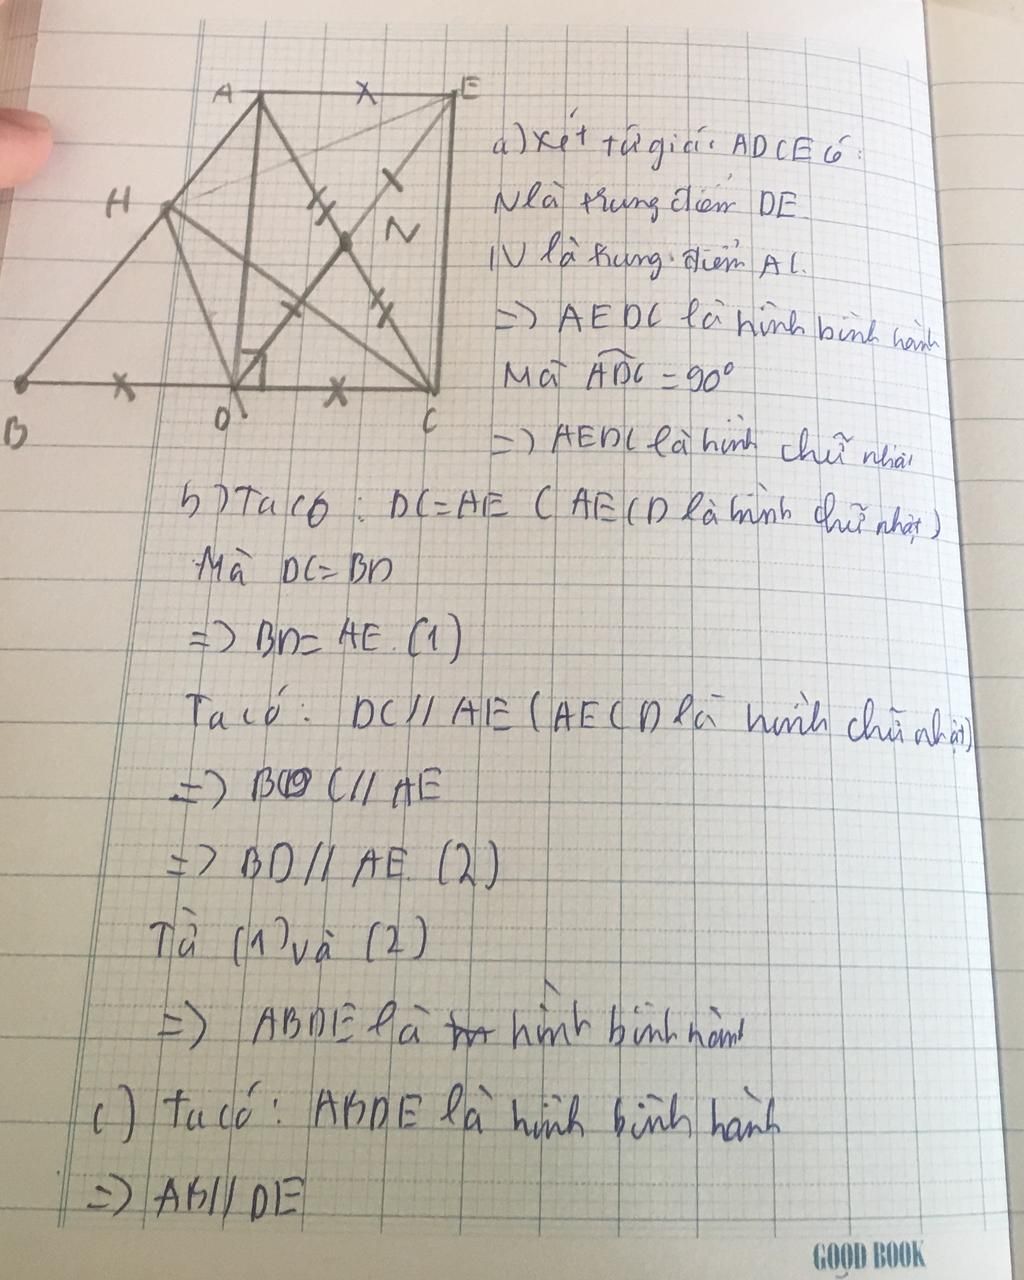 A
E
H
N
B
D
C
a) Xét tứ giác ADCE có:
N là trung điểm DE
N là trung điểm AC.
=> AEDC là hình bình hành
Mà ADC = 90°
=> AEDC là hình chữ nhật
b) Ta có: DC=AE ( AECD là hình chữ nhật)
Mà DC=BD
=> BD= AE. (1)
Ta có: DC// AE (AECD là hình chữ nhật)
=> BC// AE
=> BD// AE. (2)
Từ (1) và (2)
=> ABDE là hình bình hành
c) Ta có: ABDE là hình bình hành
=> AB// DE
GOOD BOOK